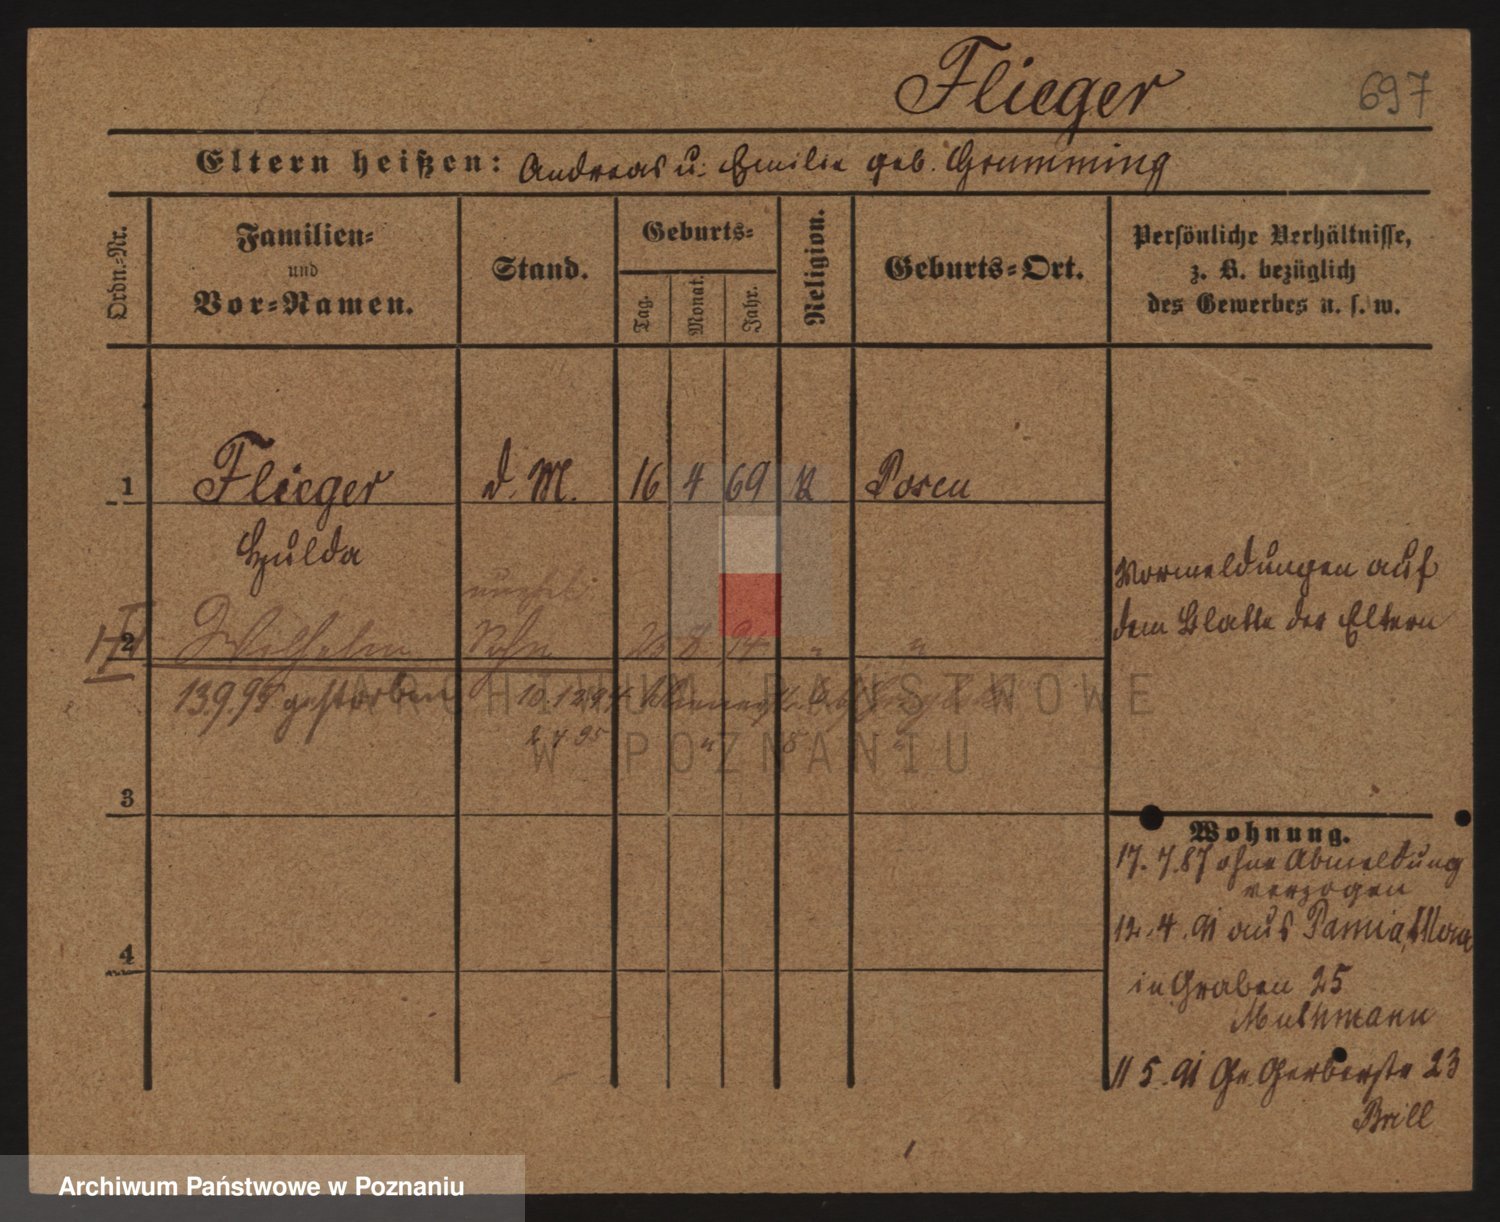 Flieger
697
Eltern heißen: Andreas u. Emilie geb. Grumming
Ordn.-Nr.
Familien-
und
Vor-Namen.
Stand.
Geburts-
Tag.
Monat.
Jahr.
Religion.
Geburts-Ort.
Persönliche Verhältnisse,
z. B. bezüglich
des Gewerbes u. s. w.
1 Flieger d. M. 16 4 69 Posen
Hulda
Vormeldungen auf
dem Blatte der Eltern
unehel.
2 Wilhelm Sohn 94 " "
13.9.95 gestorben
ARCHIWUM PAŃSTWOWE
W POZNANIU
3
Wohnung.
17.7.87 ohne Abmeldung
verzogen
12.4.91 aus
in Graben 25
4
11 5.91 Gr. Gerberstr 23
Brill
Archiwum Państwowe w Poznaniu